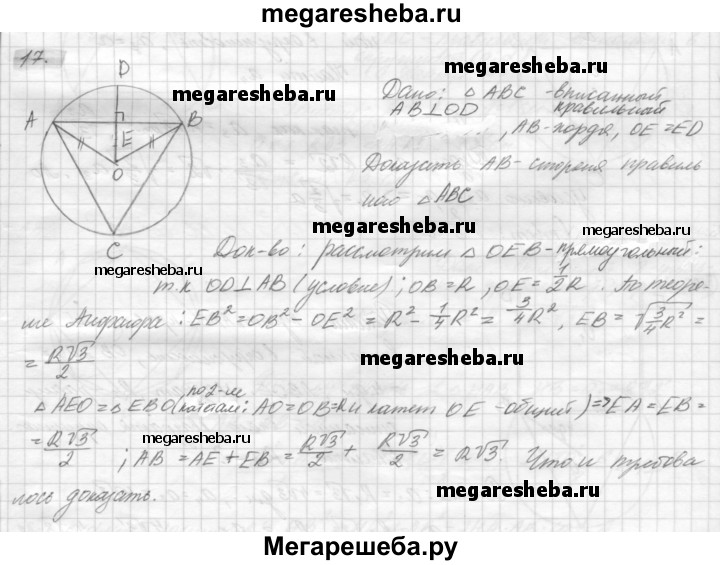 megaresheba.ru
17.
D
A
B
E
O
C
megaresheba.ru
Дано: △ ABC - вписанный
AB⊥OD правильный
megaresheba.ru , AB-хорда, OE=ED
Доказать AB-сторона правиль
ного △ABC
megaresheba.ru
megaresheba.ru
Док-во: рассмотрим △ OEB-прямоугольный:
megaresheba.ru
т.к OD⊥AB (условие); OB=R, OE=1/2R. По теоре-
ме Пифагора: EB²=OB²-OE² = R²-1/4R²= 3/4R², EB=√3/4R² =
= R√3/2
megaresheba.ru
△ AEO=△ EBO (по 2-м катетам: AO=OB=R и катет OE -общий) => EA=EB=
= R√3/2 ; AB = AE+EB = R√3/2 + R√3/2 = R√3. Что и требова
megaresheba.ru
megaresheba.ru
лось доказать.
Мегарешеба.ру